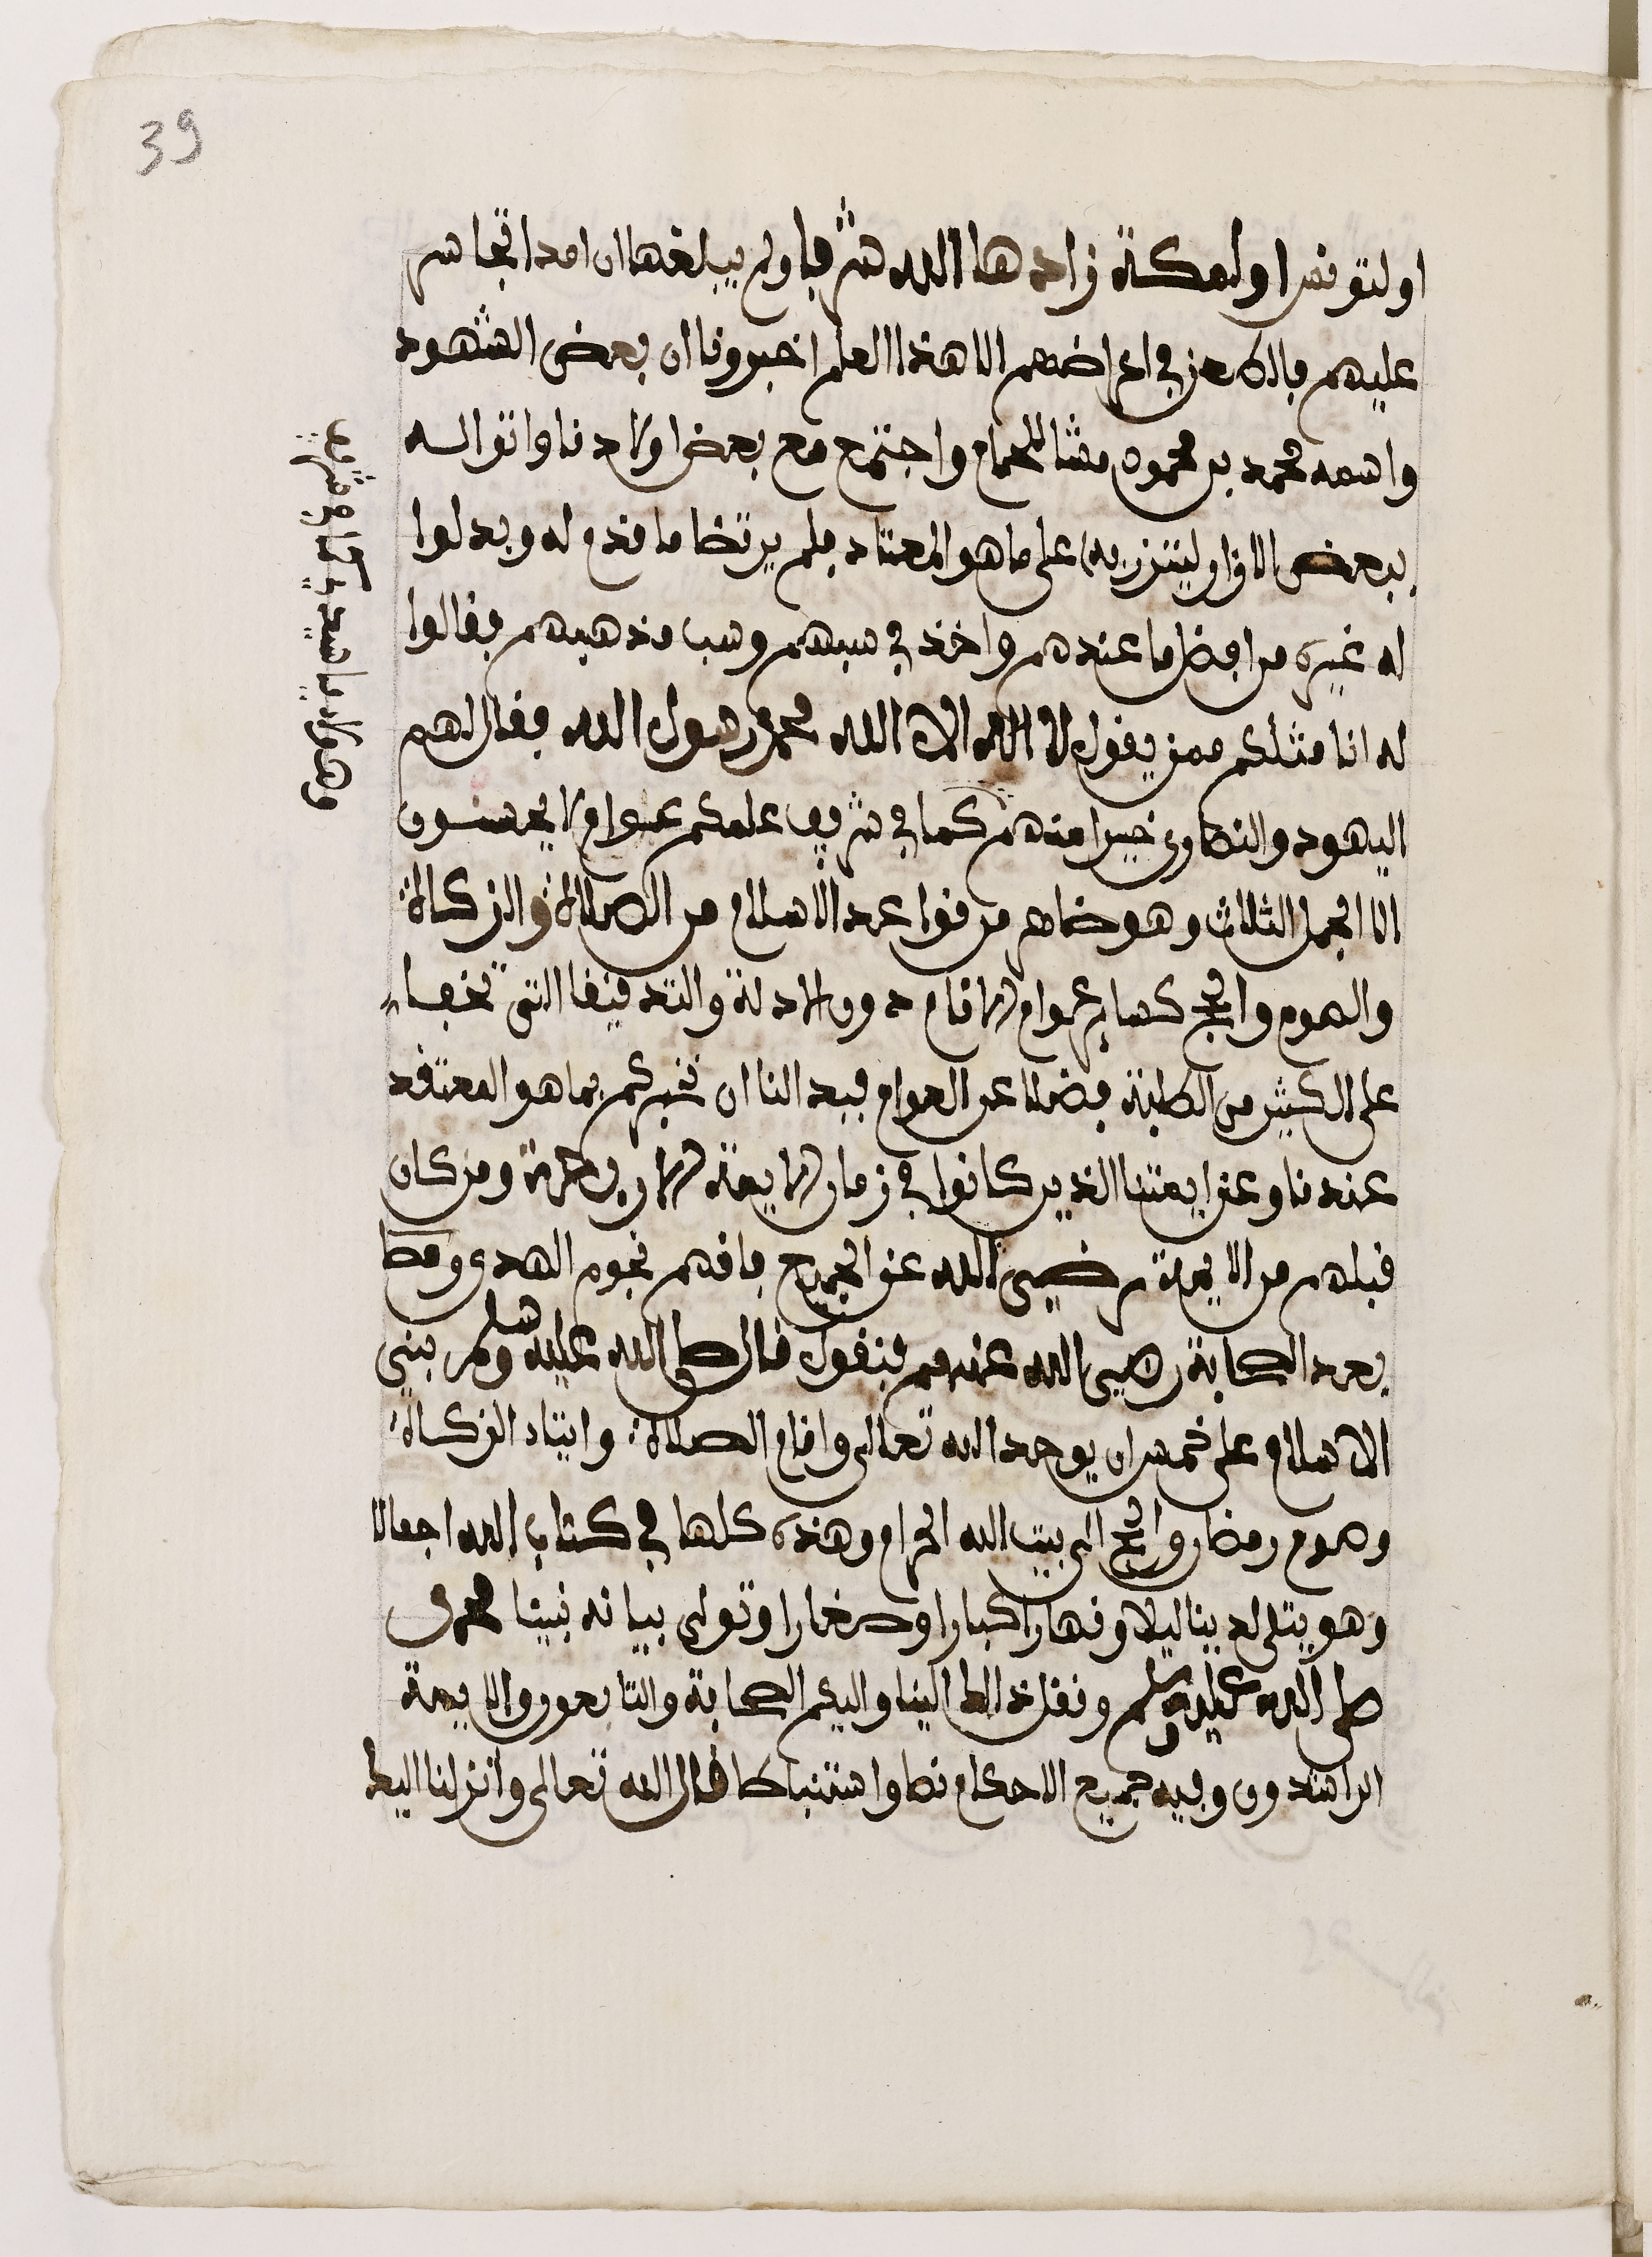 39
او لتونس او لمكة زادها الله شرفا ولم يبلغنا ان احدا تجاسر
عليهم بالطعن في اعراضهم الا هذا العلم اخبرونا ان بعض الشهود
واسمه محمد بن محمود مشا للحمام واجتمع مع بعض اولادنا واتوا له
ببعض الازار ليتزر به على ما هو المعتاد فلم يرتضا ما قدم له وبدلوا
له غيره من افضل ما عندهم واخذ في سبهم وسب مذهبهم فقالوا
له انا مثلكم ممن يقول لا اله الا الله محمد رسول الله فقال لهم
اليهود والنصارى خيرا منهم كما في شريف علمكم عوام لا يحسنون
الا الجمل الثلاث وهو ضاهر من قواعد الاسلام من الصلاة والزكاة
والصوم والحج كساير عوام الانام دون الادلة والتدقيقا التي تخفا
على الكثير من الطلبة فضلا عن العوام فبدا لنا ان نخبركم بما هو المعتقد
عندنا وعن ايمتنا الذين كانوا في زمان الايمة الاربعة ومن كان
قبلهم من الايمة رضي الله عن الجميع فانهم نجوم الهدى وقطا
بعد الصحابة رضي الله عنهم فنقول قال صلى الله عليه وسلم بني
الاسلام على خمس ان يوحد الله تعالى واقام الصلاة وايتاء الزكاة
وصوم رمضان والحج الى بيت الله الحرام وهذه كلها في كتاب الله اجمالا
وهو يتلى لدينا ليلا ونهارا كبارا وصغارا وتولى بيانه نبينا محمد
صلى الله عليه وسلم ونقل ذالك الينا واليكم الصحابة والتابعون والايمة
الراشدون وفيه جميع الاحكام نصا واستنباطا قال الله تعالى وانزلنا اليك
وهاولاء يا سيدي كما في شريف